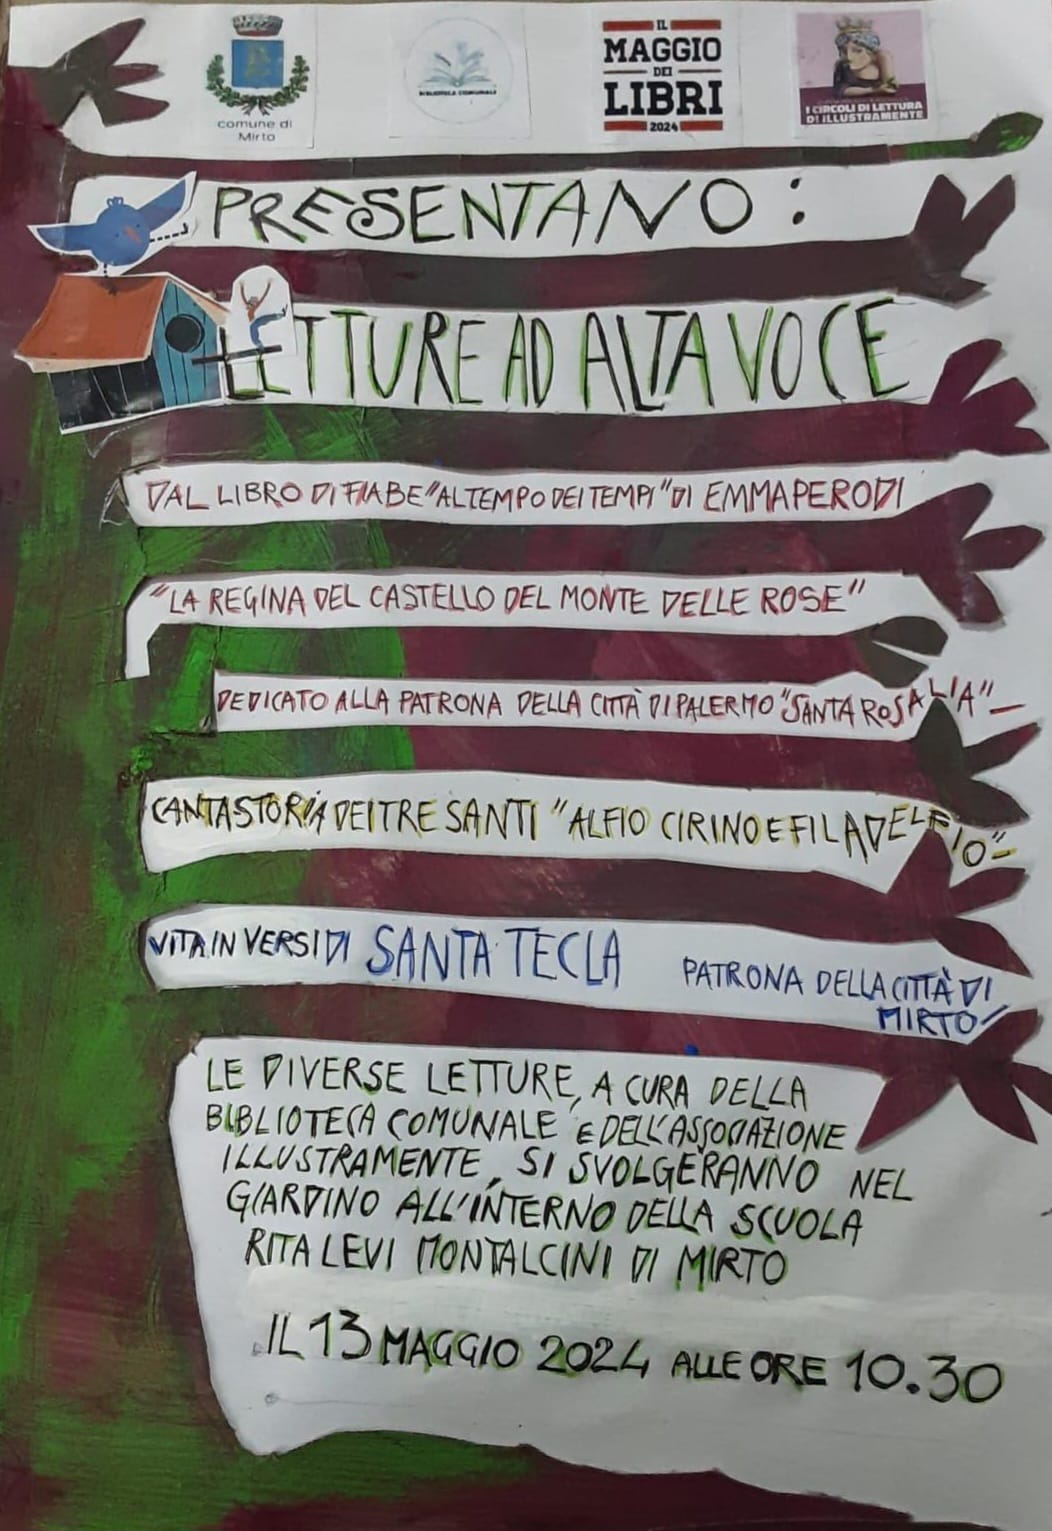 comune di
Mirto
BIBLIOTECA COMUNALE
IL
MAGGIO
DEI
LIBRI
2024
I CIRCOLI DI LETTURA
DI ILLUSTRAMENTE
PRESENTANO:
LETTURE AD ALTA VOCE
DAL LIBRO DI FIABE "AL TEMPO DEI TEMPI" DI EMMA PERODI
"LA REGINA DEL CASTELLO DEL MONTE DELLE ROSE"
DEDICATO ALLA PATRONA DELLA CITTÀ DI PALERMO "SANTA ROSALIA"-
CANTASTORIA DEI TRE SANTI "ALFIO CIRINO E FILADELFIO"-
VITA IN VERSI DI SANTA TECLA PATRONA DELLA CITTÀ DI
MIRTO
LE DIVERSE LETTURE, A CURA DELLA
BIBLIOTECA COMUNALE E DELL'ASSOCIAZIONE
ILLUSTRAMENTE, SI SVOLGERANNO NEL
GIARDINO ALL'INTERNO DELLA SCUOLA
RITA LEVI MONTALCINI DI MIRTO
IL 13 MAGGIO 2024 ALLE ORE 10.30